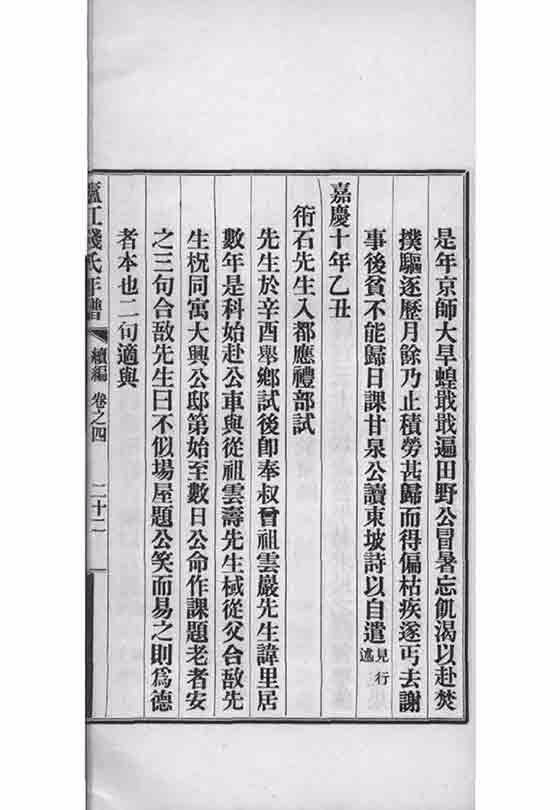 是年京師大旱蝗戢戢遍田野公冒暑忘飢渴以赴焚
撲驅逐歷月餘乃止積勞甚歸而得偏枯疾遂丐去謝
事後貧不能歸日課甘泉公讀東坡詩以自遣見行述
嘉慶十年乙丑
衎石先生入都應禮部試
先生於辛酉舉鄉試後卽奉叔曾祖雲巖先生諱里居
數年是科始赴公車與從祖雲壽先生棫從父合敔先
生柷同寓大興公邸第始至數日公命作課題老者安
之三句合敔先生曰不似場屋題公笑而易之則爲德
者本也二句適與
廬江錢氏年譜 續編 卷之四 二十二